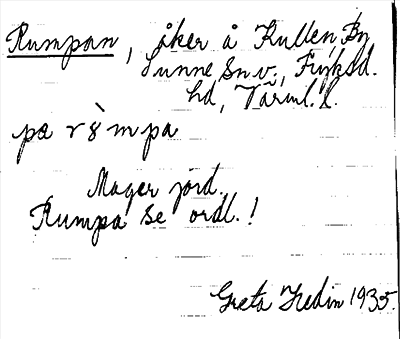 Rumpan, åker å Kullen By
Sunne Sn v., Fryksd.
hd, Värml. l.
pa rɣ̀mpa
Mager jord.
Rumpa se ordl.!
Greta Hedin 1935.